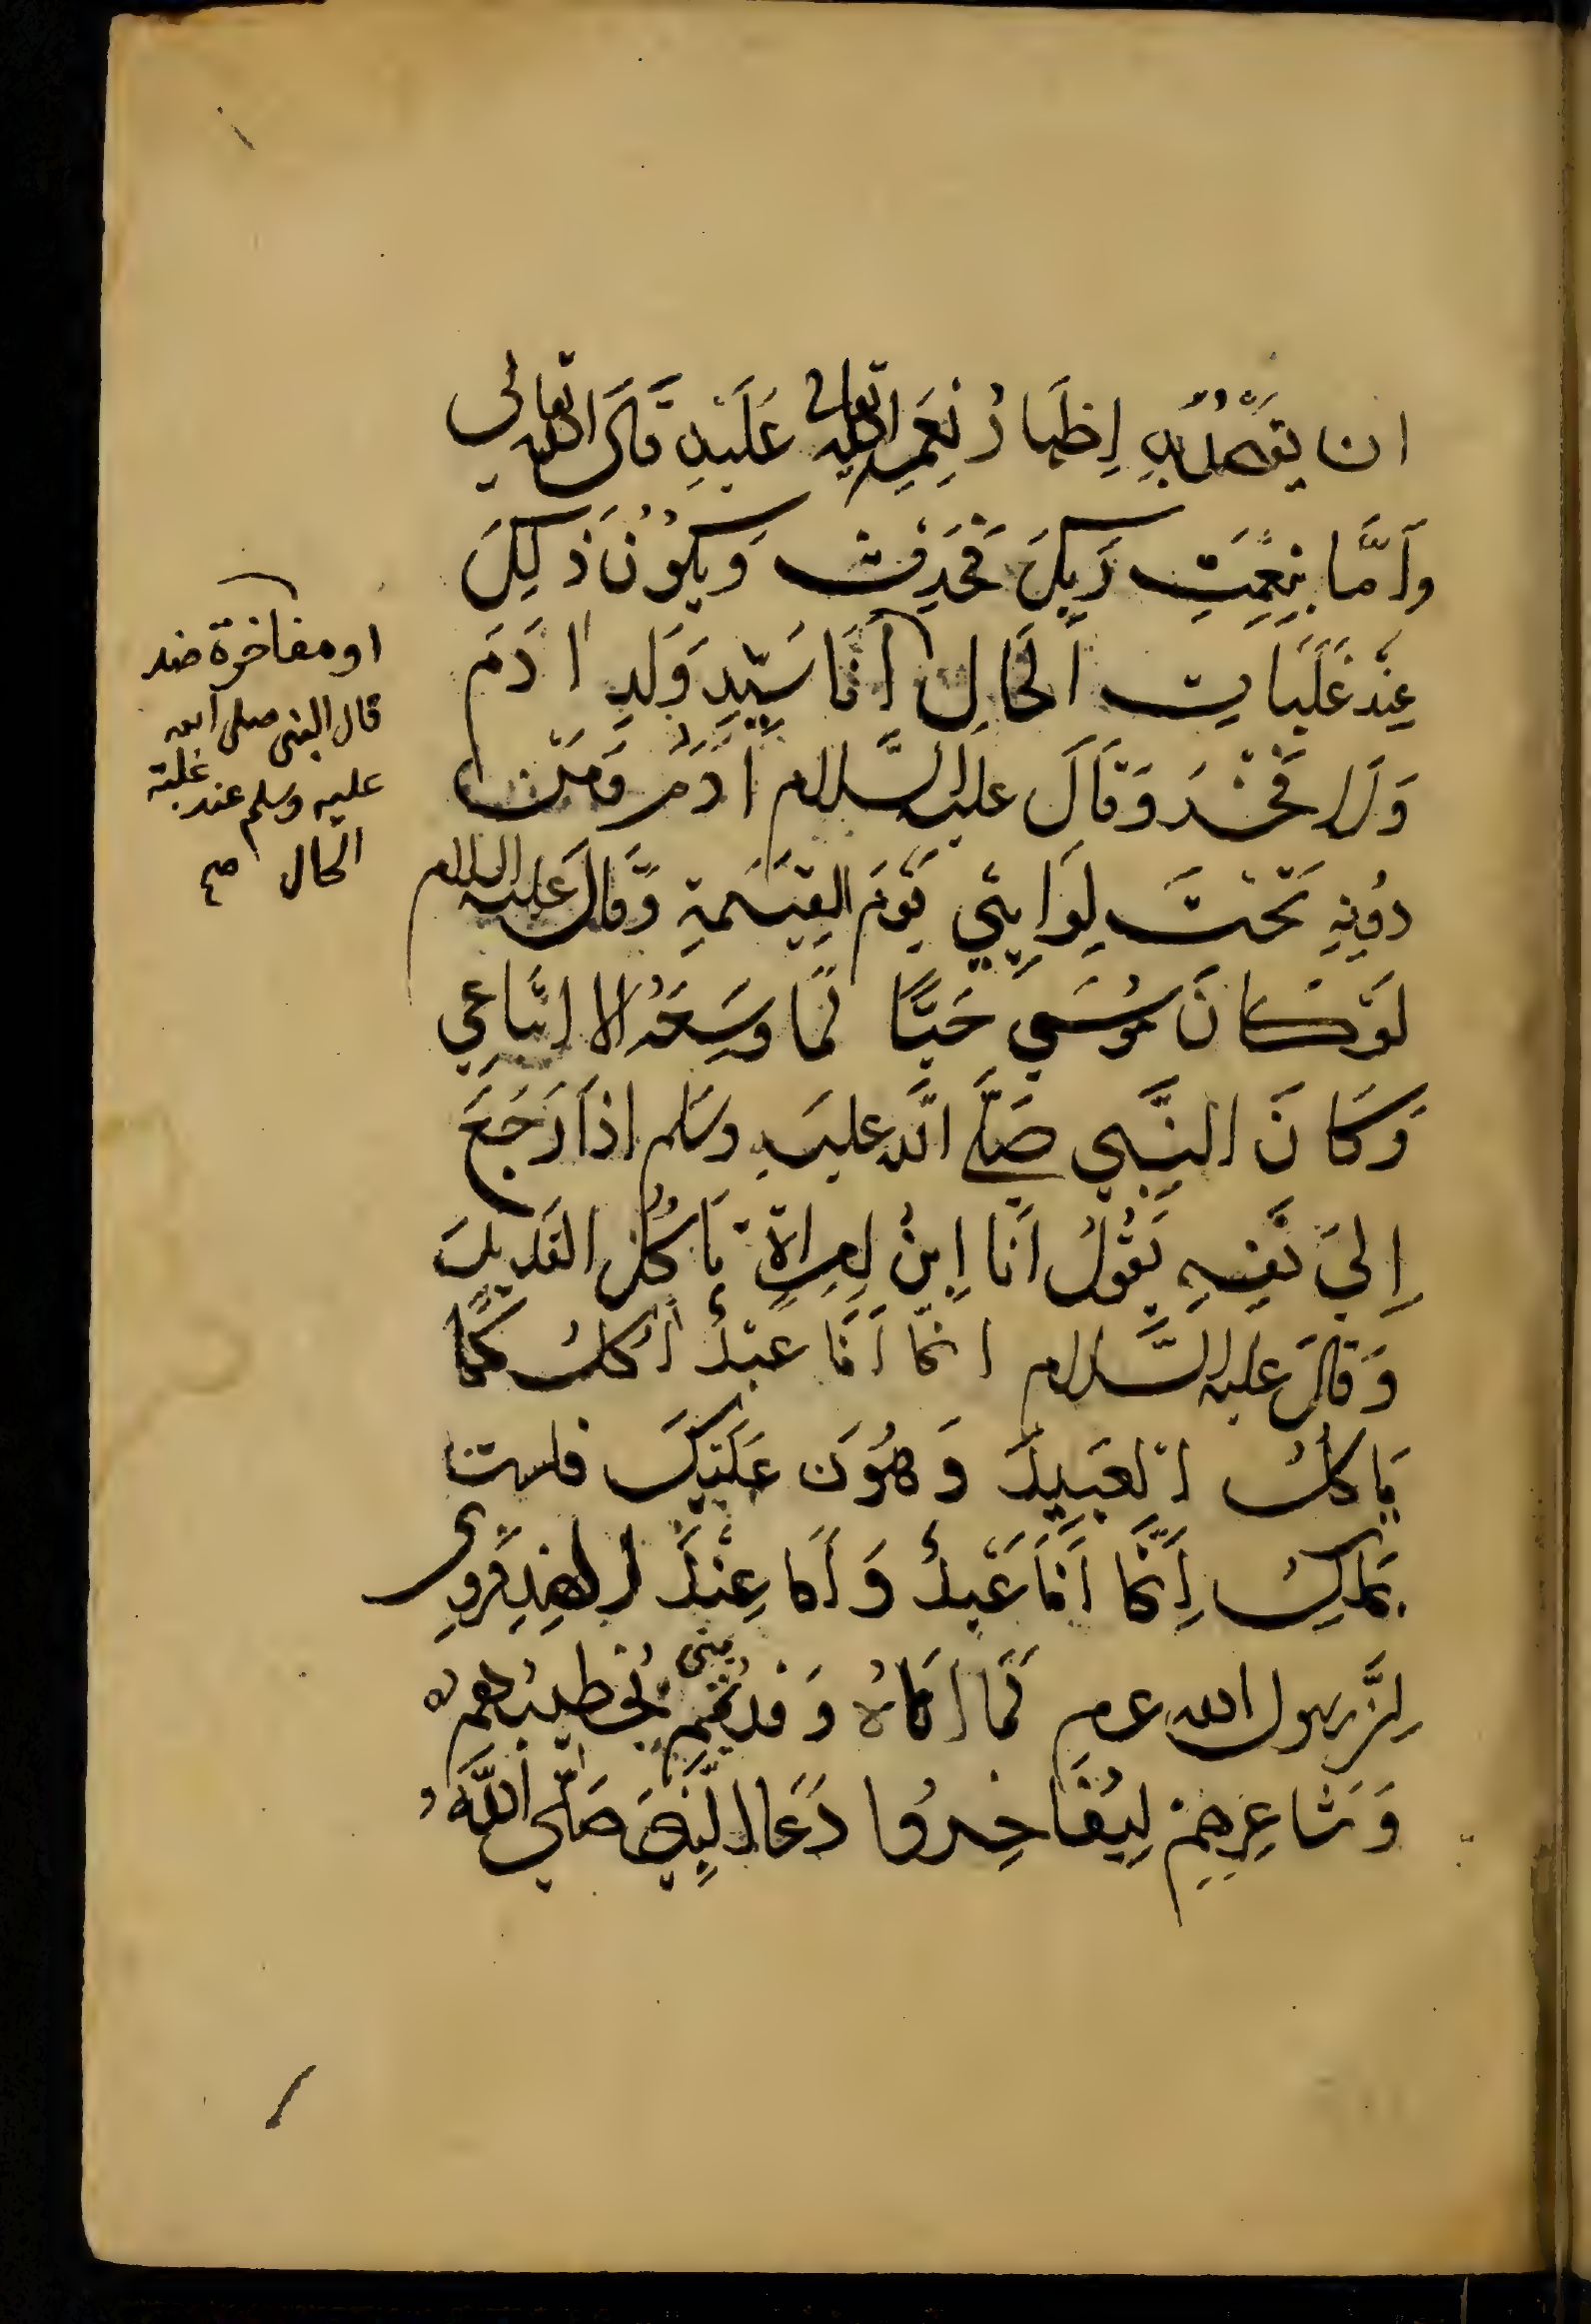 ان يقصد به إظهار نعم الله تعالى عليه قال الله تعالى
وأما بنعمت ربك فحدث ويكون ذلك
عند غلبات الحال أنا سيد ولد ادم
ولا فخر وقال عليه السلام ادم ومن
دونه تحت لوايي يوم القيمة وقال عليه السلام
لو كان موسى حيا لما وسعه الا اتباعي
وكان النبي صلى الله عليه وسلم اذا رجع
إلى نفسه يقول انا ابن امراة تاكل القديد
وقال عليه السلام انما أنا عبد آكل كما
ياكل العبيد وهون عليك فلست
بملك إنما أنا عبد و عند
رسول الله عم لما اتاه وفد تميم بخطيبهم
وشاعرهم ليفاخروا دعا النبي صلى الله
او مفاخرة ضد
قال النبي صلى الله
عليه وسلم عند غلبة
الحال صح